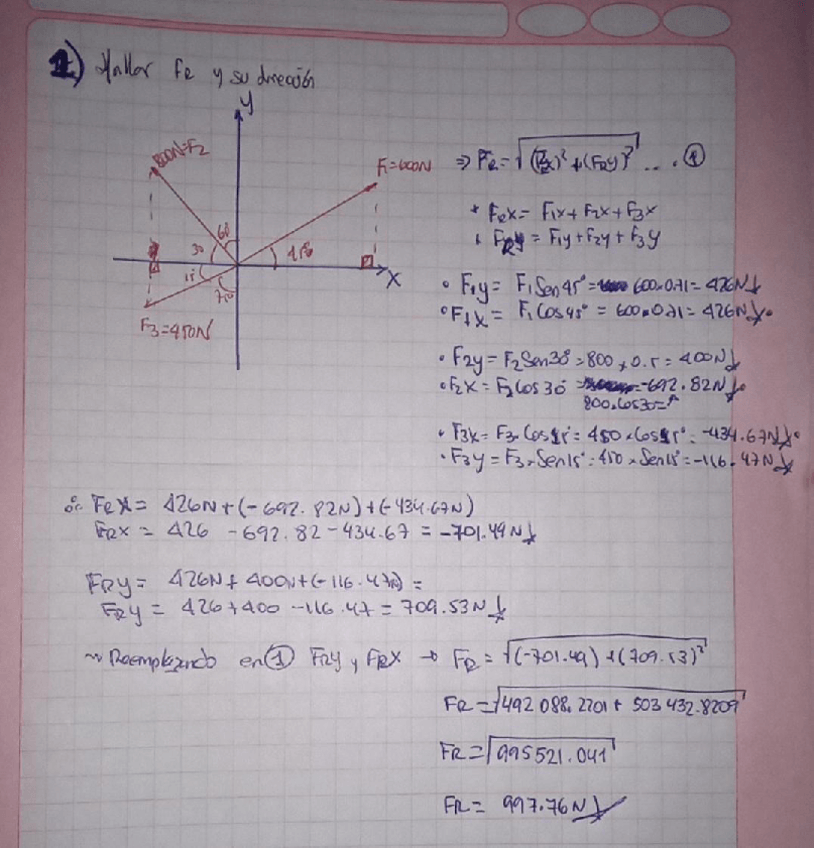 1) Hallar FR y su dirección
y
800N=F2
F1=600N
60
30
45°
15
75°
X
F3=450N
⇒ FR = √(FRx)² + (FRy)² ... ①
* FRX = F1X + F2X + F3X
* FRY = F1y + F2y + F3y
• F1y = F1 Sen 45° = 600 x 0.71 = 426N
• F1X = F1 Cos 45° = 600 x 0.71 = 426N
• F2y = F2 Sen 30° = 800 x 0.5 = 400N
• F2X = F2 Cos 30 = -692.82N
800 x Cos 30 =
• F3X = F3 x Cos 15° = 450 x Cos 15° = -434.67N
• F3y = F3 x Sen 15° = 450 x Sen 15° = -116.47N
∴ FRX = 426N + (-692.82N) + (-434.67N)
FRX = 426 - 692.82 - 434.67 = -701.49N
FRy = 426N + 400N + (-116.47N) =
FRy = 426 + 400 - 116.47 = 709.53N
~ Reemplazando en ① FRy y FRX → FR = √(-701.49) + (709.53)²
FR = √492 088.2201 + 503 432.8209
FR = √995521.041
FR = 997.76N